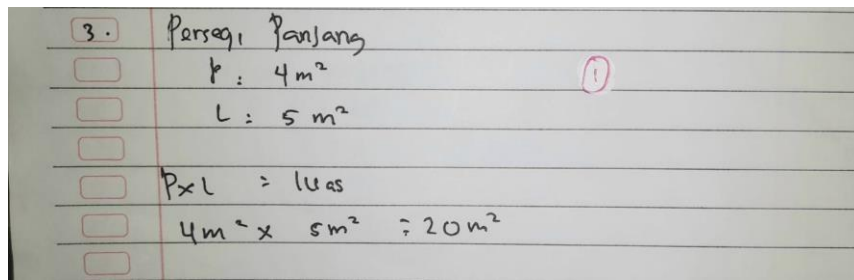 3. Persegi Panjang
P : 4 m²
1
L : 5 m²
P x L = luas
4 m² x 5 m² = 20 m²